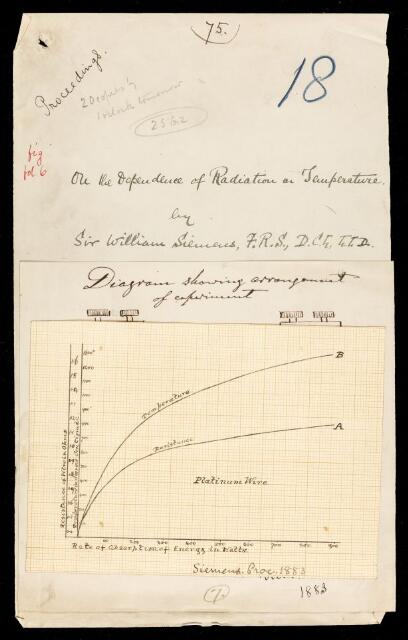 75.
18
Proceedings.
20 copies by
1 o'clock tomorrow
2562
fig
fd 6
On the Dependence of Radiation on Temperature.
by
Sir William Siemens, F.R.S., D.C.L, LL.D.
Diagram showing arrangement
of experiment
B
Temperature
A
Resistance
Platinum Wire
Resistance of Wire in Ohms
Rate of Absorption of Energy in Watts.
Siemens. Proc. 1883
1883